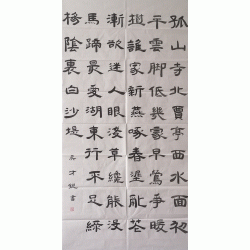 孤山寺北賈亭西水面初
平雲脚低幾處早鶯爭暖
樹誰家新燕啄春泥亂花
漸欲迷人眼淺草才能沒
馬蹄最愛湖東行不足綠
楊陰裏白沙堤
才書